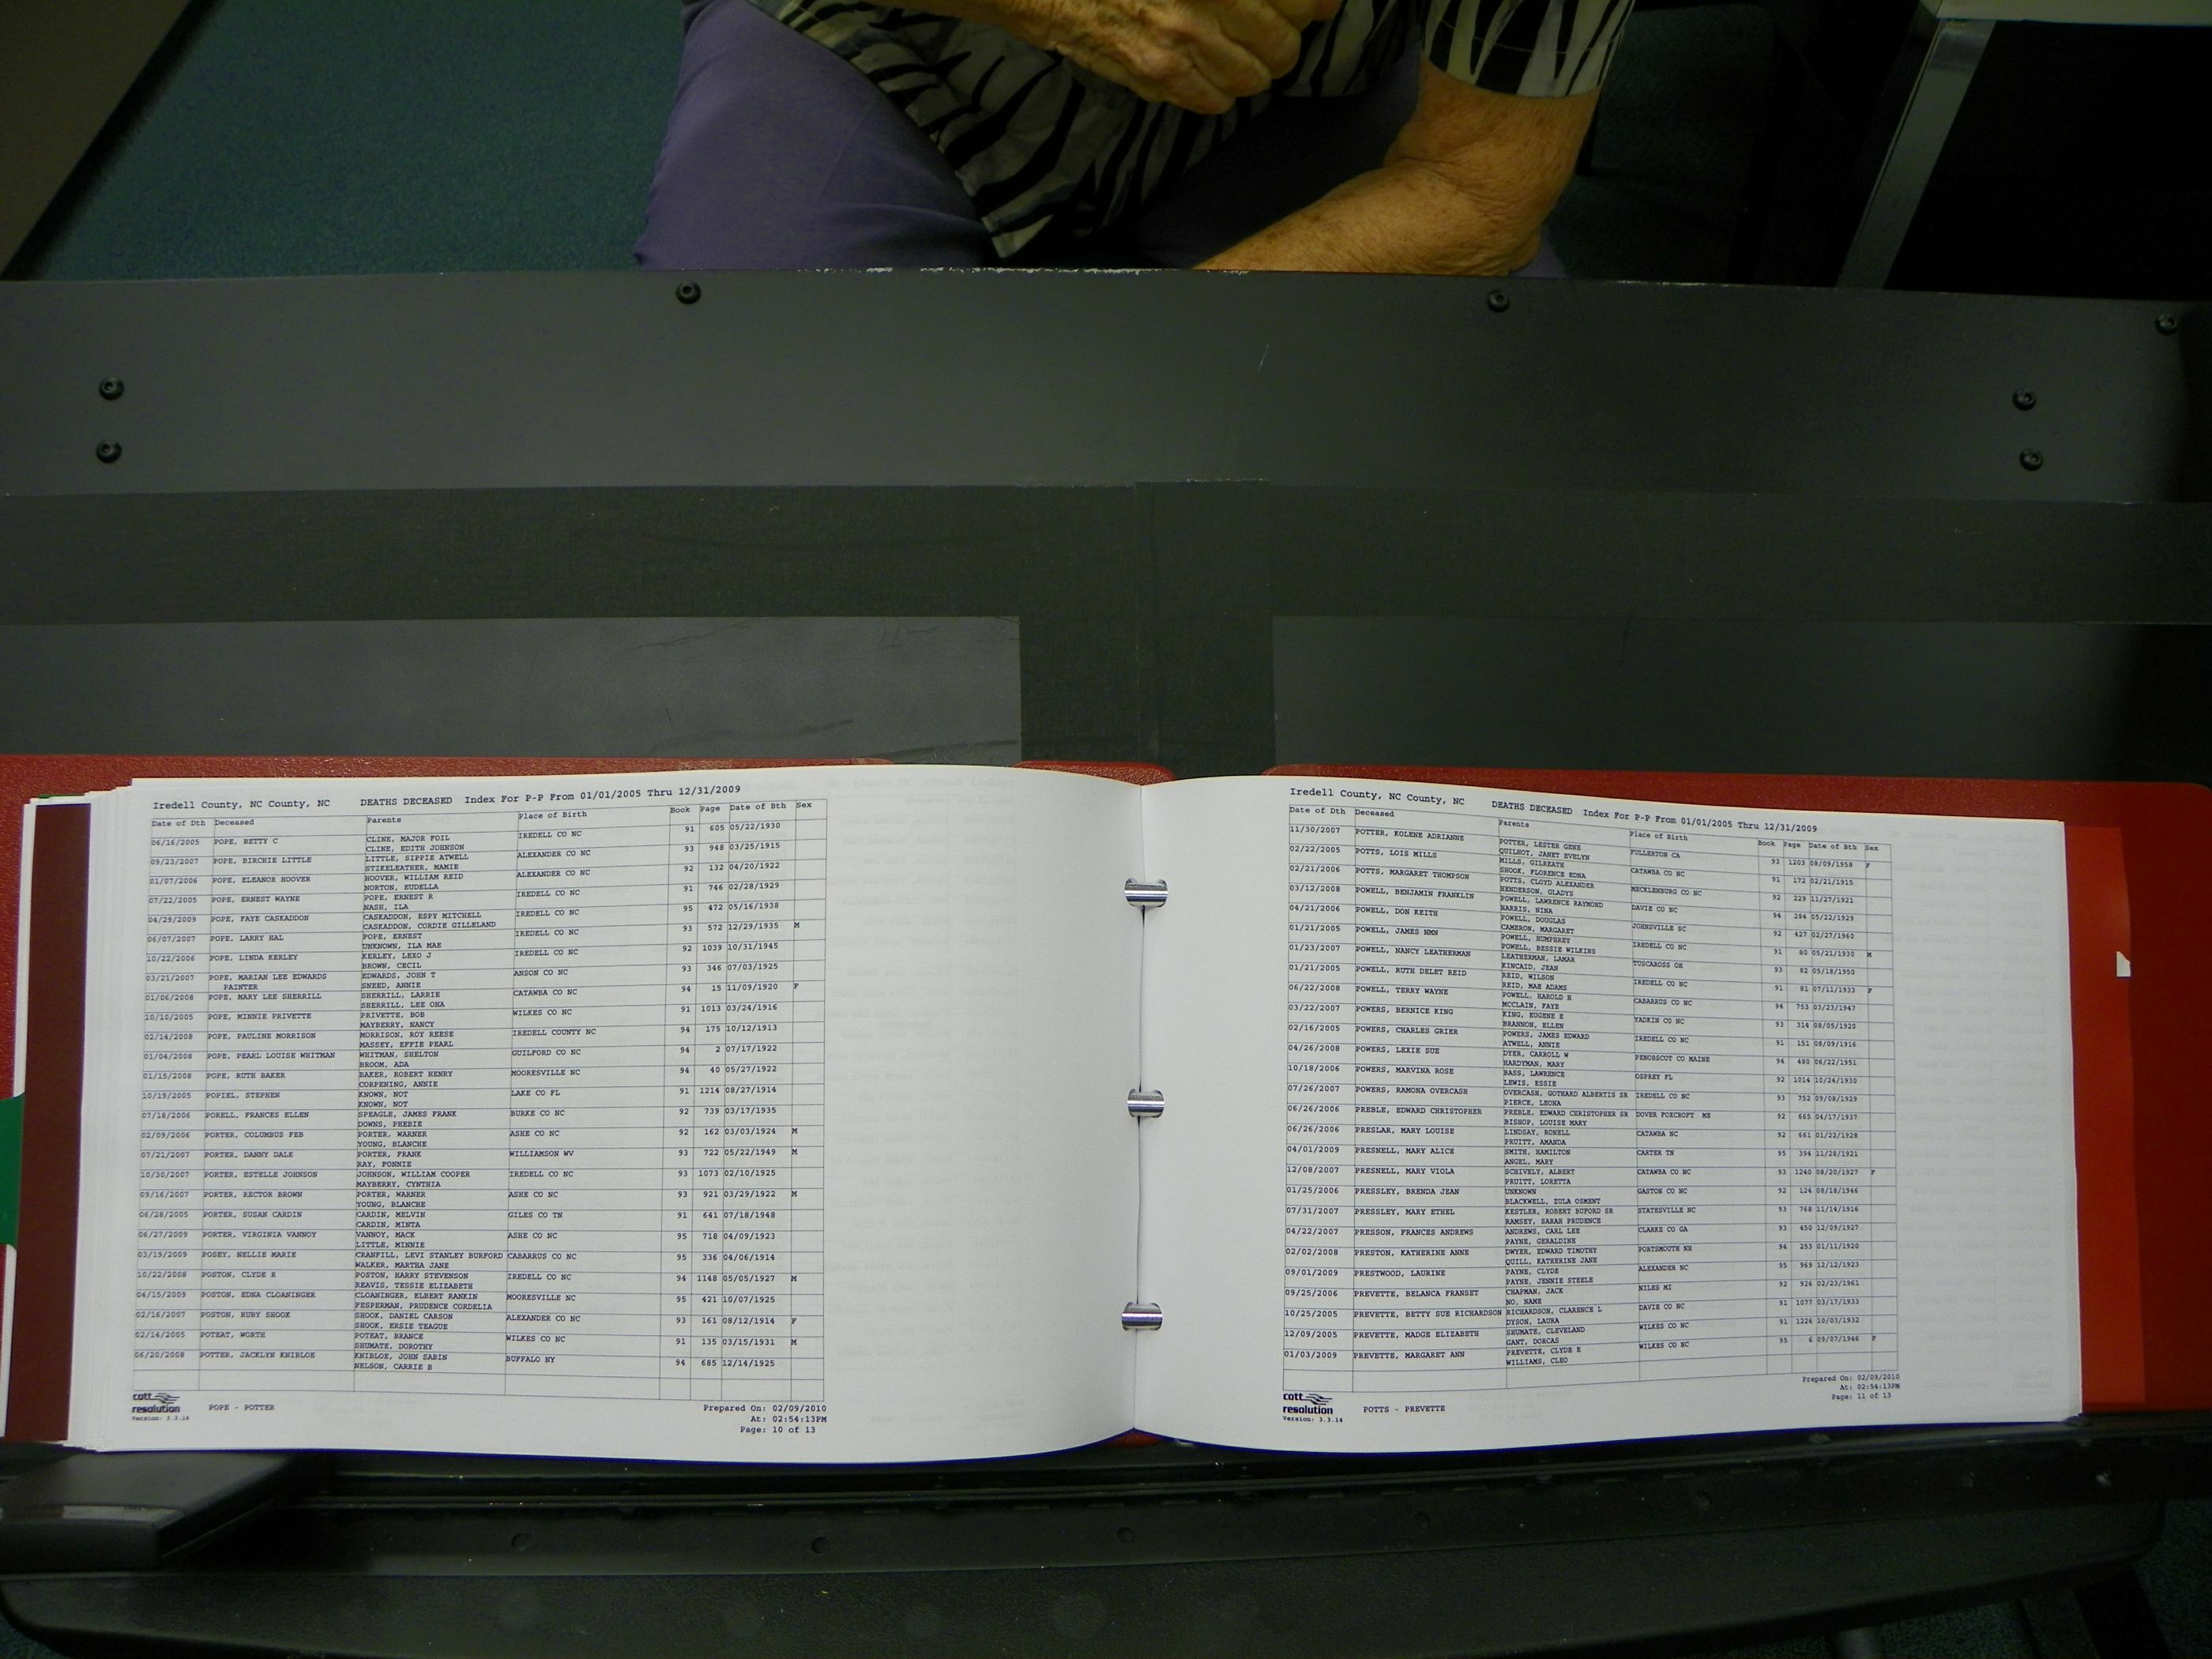 Iredell County, NC County, NC DEATHS DECEASED Index For P-P From 01/01/2005 Thru 12/31/2009
Date of Dth Deceased Parents Place of Birth Book Page Date of Bth Sex
06/16/2005 POPE, BETTY C CLINE, MAJOR FOIL IREDELL CO NC 91 605 05/22/1930
CLINE, EDITH JOHNSON
09/23/2007 POPE, BIRCHIE LITTLE LITTLE, SIPPIE ATWELL ALEXANDER CO NC 93 948 03/25/1915
STIKELEATHER, MAMIE
01/07/2006 POPE, ELEANOR HOOVER HOOVER, WILLIAM REID ALEXANDER CO NC 92 132 04/20/1922
NORTON, EUDELLA
07/22/2005 POPE, ERNEST WAYNE POPE, ERNEST R IREDELL CO NC 91 746 02/28/1929
NASH, ILA
04/29/2009 POPE, FAYE CASKADDON CASKADDON, ESPY MITCHELL IREDELL CO NC 95 472 05/16/1938
CASKADDON, CORDIE GILLELAND
06/07/2007 POPE, LARRY HAL POPE, ERNEST IREDELL CO NC 93 572 12/29/1935 M
UNKNOWN, ILA MAE
10/22/2006 POPE, LINDA KERLEY KERLEY, LEXO J IREDELL CO NC 92 1039 10/31/1945
BROWN, CECIL
03/21/2007 POPE, MARIAN LEE EDWARDS EDWARDS, JOHN T ANSON CO NC 93 346 07/03/1925
PAINTER SNEED, ANNIE
01/06/2008 POPE, MARY LEE SHERRILL SHERRILL, LARRIE CATAWBA CO NC 94 15 11/09/1920 F
SHERRILL, LEE ONA
10/10/2005 POPE, MINNIE PRIVETTE PRIVETTE, BOB WILKES CO NC 91 1013 03/24/1916
MAYBERRY, NANCY
02/14/2008 POPE, PAULINE MORRISON MORRISON, ROY REESE IREDELL COUNTY NC 94 175 10/12/1913
MASSEY, EFFIE PEARL
01/04/2008 POPE, PEARL LOUISE WHITMAN WHITMAN, SHELTON GUILFORD CO NC 94 2 07/17/1922
BROOM, ADA
01/15/2008 POPE, RUTH BAKER BAKER, ROBERT HENRY MOORESVILLE NC 94 40 05/27/1922
CORPENING, ANNIE
10/19/2005 POPIEL, STEPHEN KNOWN, NOT LAKE CO FL 91 1214 08/27/1914
KNOWN, NOT
07/18/2006 PORELL, FRANCES ELLEN SPEAGLE, JAMES FRANK BURKE CO NC 92 739 03/17/1935
DOWNS, PHEBIE
02/09/2006 PORTER, COLUMBUS FEB PORTER, WARNER ASHE CO NC 92 162 03/03/1924 M
YOUNG, BLANCHE
07/21/2007 PORTER, DANNY DALE PORTER, FRANK WILLIAMSON WV 93 722 05/22/1949 M
RAY, FONNIE
10/30/2007 PORTER, ESTELLE JOHNSON JOHNSON, WILLIAM COOPER IREDELL CO NC 93 1073 02/10/1925
MAYBERRY, CYNTHIA
09/16/2007 PORTER, RECTOR BROWN PORTER, WARNER ASHE CO NC 93 921 03/29/1922 M
YOUNG, BLANCHE
06/28/2005 PORTER, SUSAN CARDIN CARDIN, MELVIN GILES CO TN 91 641 07/18/1948
CARDIN, MINTA
06/27/2009 PORTER, VIRGINIA VANNOY VANNOY, MACK ASHE CO NC 95 718 04/09/1923
LITTLE, MINNIE
03/19/2009 POSEY, NELLIE MARIE CRANFILL, LEVI STANLEY BURFORD CABARRUS CO NC 95 336 04/06/1914
WALKER, MARTHA JANE
10/22/2008 POSTON, CLYDE R POSTON, HARRY STEVENSON IREDELL CO NC 94 1148 05/05/1927 M
REAVIS, TESSIE ELIZABETH
04/15/2009 POSTON, EDNA CLOANINGER CLOANINGER, ELBERT RANKIN MOORESVILLE NC 95 421 10/07/1925
FESPERMAN, PRUDENCE CORDELIA
02/16/2007 POSTON, RUBY SHOOK SHOOK, DANIEL CARSON ALEXANDER CO NC 93 161 08/12/1914 F
SHOOK, ERSIE TEAGUE
02/14/2005 POTEAT, WORTH POTEAT, BRANCE WILKES CO NC 91 135 03/15/1931 M
SHUMATE, DOROTHY
06/20/2008 POTTER, JACKLYN KNIBLOE KNIBLOE, JOHN SABIN BUFFALO NY 94 685 12/14/1925
NELSON, CARRIE B
cott
resolution
Version: 3.3.14
POPE - POTTER
Prepared On: 02/09/2010
At: 02:54:13PM
Page: 10 of 13
Iredell County, NC County, NC DEATHS DECEASED Index For P-P From 01/01/2005 Thru 12/31/2009
Date of Dth Deceased Parents Place of Birth Book Page Date of Bth Sex
11/30/2007 POTTER, KOLENE ADRIANNE POTTER, LESTER GENE FULLERTON CA 93 1203 08/09/1958 F
QUILHOT, JANET EVELYN
02/22/2005 POTTS, LOIS MILLS MILLS, GILREATH CATAWBA CO NC 91 172 02/21/1915
SHOOK, FLORENCE EDNA
02/21/2006 POTTS, MARGARET THOMPSON POTTS, CLOYD ALEXANDER MECKLENBURG CO NC 92 229 11/27/1921
HENDERSON, GLADYS
03/12/2008 POWELL, BENJAMIN FRANKLIN POWELL, LAWRENCE RAYMOND DAVIE CO NC 94 284 05/22/1929
HARRIS, NINA
04/21/2006 POWELL, DON KEITH POWELL, DOUGLAS JOHNSVILLE SC 92 427 02/27/1960
CAMERON, MARGARET
01/21/2005 POWELL, JAMES NMN POWELL, HUMPHREY IREDELL CO NC 91 80 05/21/1930 M
POWELL, BESSIE WILKINS
01/23/2007 POWELL, NANCY LEATHERMAN LEATHERMAN, LAMAR TUSCAROSS OH 93 82 05/18/1950
KINCAID, JEAN
01/21/2005 POWELL, RUTH DELET REID REID, WILSON IREDELL CO NC 91 81 07/11/1933 F
REID, MAE ADAMS
06/22/2008 POWELL, TERRY WAYNE POWELL, HAROLD H CABARRUS CO NC 94 753 03/23/1947
MCCLAIN, FAYE
03/22/2007 POWERS, BERNICE KING KING, EUGENE E YADKIN CO NC 93 314 08/05/1920
BRANNON, ELLEN
02/16/2005 POWERS, CHARLES GRIER POWERS, JAMES EDWARD IREDELL CO NC 91 151 08/09/1916
ATWELL, ANNIE
04/26/2008 POWERS, LEXIE SUE DYER, CARROLL W PENOBSCOT CO MAINE 94 480 06/22/1951
HARDYMAN, MARY
10/18/2006 POWERS, MARVINA ROSE BASS, LAWRENCE OSPREY FL 92 1014 10/24/1930
LEWIS, ESSIE
07/26/2007 POWERS, RAMONA OVERCASH OVERCASH, GOTHARD ALBERTIS SR IREDELL CO NC 93 752 09/08/1929
PIERCE, LEONA
06/26/2006 PREBLE, EDWARD CHRISTOPHER PREBLE, EDWARD CHRISTOPHER SR DOVER FOXCROFT ME 92 665 04/17/1937
BISHOP, LOUISE MARY
06/26/2006 PRESLAR, MARY LOUISE LINDSAY, RONELL CATAWBA NC 92 661 01/22/1928
PRUITT, AMANDA
04/01/2009 PRESNELL, MARY ALICE SMITH, HAMILTON CARTER TN 95 394 11/28/1921
ANGEL, MARY
12/08/2007 PRESNELL, MARY VIOLA SCHIVELY, ALBERT CATAWBA CO NC 93 1240 08/20/1927 F
PRUITT, LORETTA
01/25/2006 PRESSLEY, BRENDA JEAN UNKNOWN GASTON CO NC 92 124 08/18/1946
BLACKWELL, ZULA OSMENT
07/31/2007 PRESSLEY, MARY ETHEL KESTLER, ROBERT BUFORD SR STATESVILLE NC 93 768 11/14/1916
RAMSEY, SARAH PRUDENCE
04/22/2007 PRESSON, FRANCES ANDREWS ANDREWS, CARL LEE CLARKE CO GA 93 450 12/09/1927
PAYNE, GERALDINE
02/02/2008 PRESTON, KATHERINE ANNE DWYER, EDWARD TIMOTHY PORTSMOUTH NH 94 253 01/11/1920
QUILL, KATHERINE JANE
09/01/2009 PRESTWOOD, LAURINE PAYNE, CLYDE ALEXANDER NC 95 969 12/12/1923
PAYNE, JENNIE STEELE
09/25/2006 PREVETTE, BELANCA FRANSET CHAPMAN, JACK NILES MI 92 926 02/23/1961
NO, NAME
10/25/2005 PREVETTE, BETTY SUE RICHARDSON RICHARDSON, CLARENCE L DAVIE CO NC 91 1077 03/17/1933
DYSON, LAURA
12/09/2005 PREVETTE, MADGE ELIZABETH SHUMATE, CLEVELAND WILKES CO NC 91 1226 10/03/1932
GANT, DORCAS
01/03/2009 PREVETTE, MARGARET ANN PREVETTE, CLYDE E WILKES CO NC 95 6 09/07/1946 F
WILLIAMS, CLEO
cott
resolution
Version: 3.3.14
POTTS - PREVETTE
Prepared On: 02/09/2010
At: 02:54:13PM
Page: 11 of 13